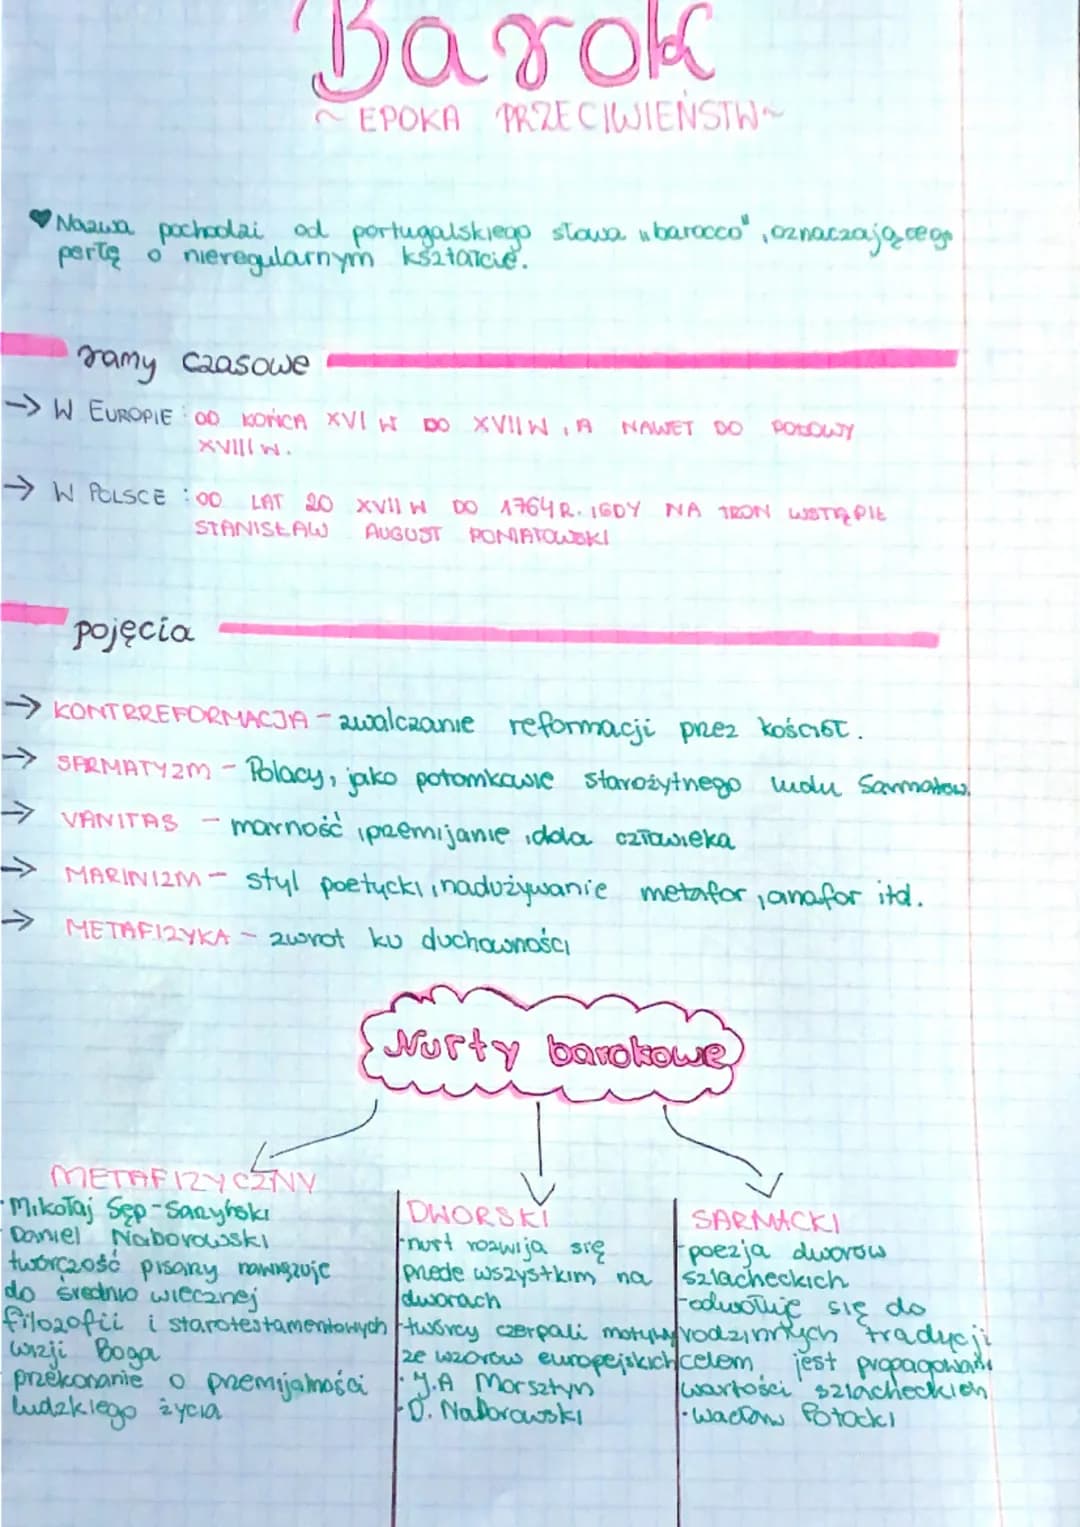 Barok
~ EPOKA PRZECIWIEŃSTW~
Nazwa pochodzi od portugalskiego słowa „barocco", oznaczającego
perłę o nieregularnym kształcie.
ramy czasowe
→ W EUROPIE : OD KOŃCA XVI W DO XVII W , A NAWET DO POŁOWY
XVIII W.
→ W POLSCE : OD LAT 20 XVII W DO 1764 R. , GDY NA TRON WSTĄPIŁ
STANISŁAW AUGUST PONIATOWSKI
pojęcia
→ KONTRREFORMACJA - zwalczanie reformacji przez kościół.
→ SARMATYZM - Polacy, jako potomkowie starożytnego ludu Sarmatow.
→ VANITAS - marność , przemijanie , dola człowieka
→ MARINIZM - styl poetycki , nadużywanie metafor , anafor itd.
→ METAFIZYKA - zwrot ku duchowności
Nurty barokowe
METAFIZYCZNY
· Mikołaj Sęp-Sarzyński
Daniel Naborowski
twórczość pisarzy nawiązuje
do średnio wiecznej
filozofii i starotestamentowych
wizji Boga
przekonanie o przemijalności
ludzkiego życia
DWORSKI
-nurt rozwija się
przede wszystkim na
dworach
-twórcy czerpali motywy
ze wzorów europejskich
· J.A Morsztyn
· D. Naborowski
SARMACKI
-poezja dworów
szlacheckich
-odwołuje się do
rodzimych tradycji
celem jest propagowanie
wartości szlacheckich
· Wacław Potocki